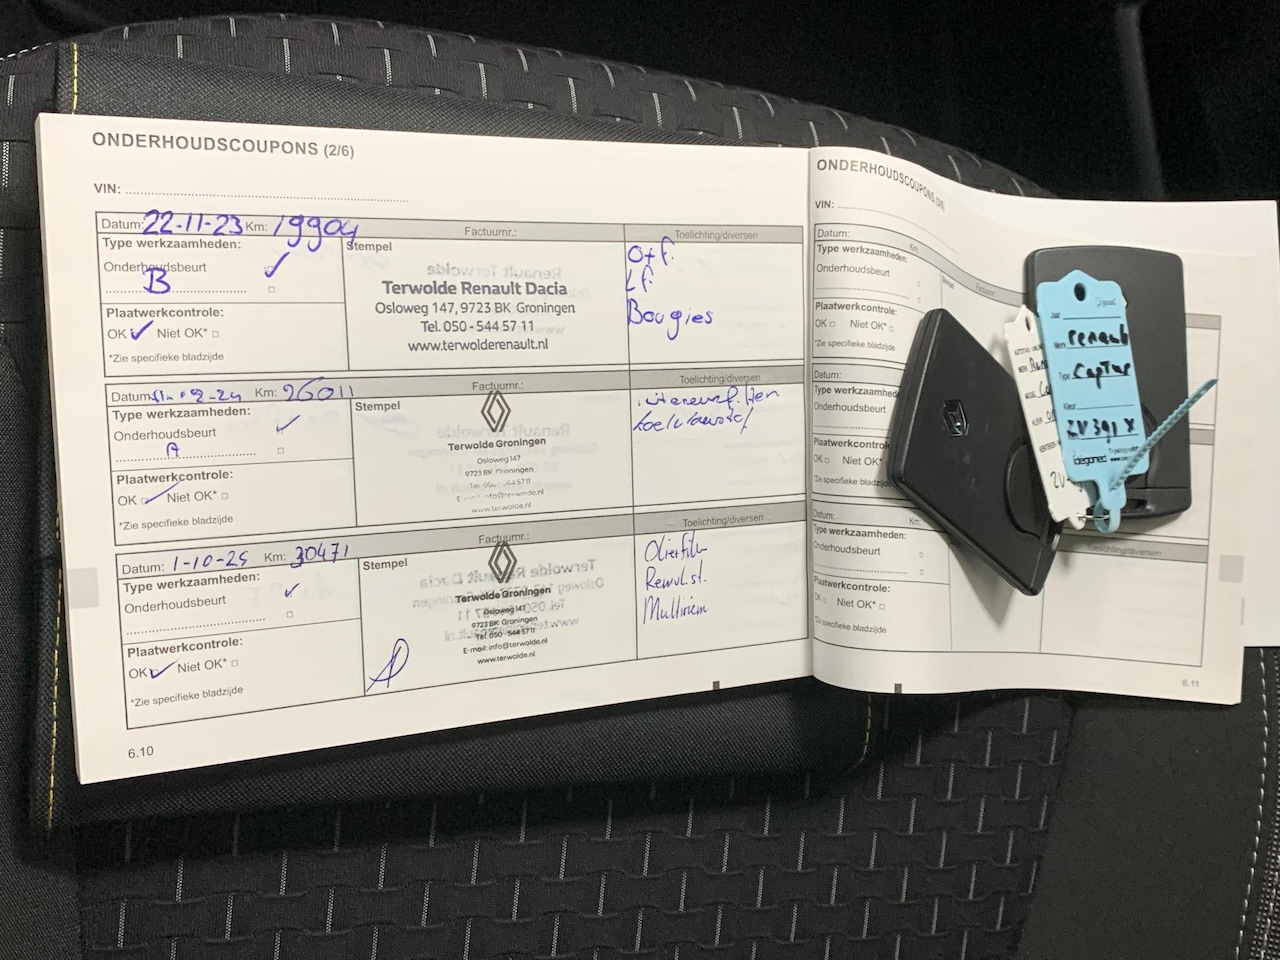 ONDERHOUDSCOUPONS (2/6)
VIN:
Datum: 22-11-23 Km: 19904
Factuurnr.:
Toelichting/diversen
Type werkzaamheden:
Stempel
Onderhoudsbeurt
B
Plaatwerkcontrole:
OK Niet OK*
*Zie specifieke bladzijde
Terwolde Renault Dacia
Osloweg 147, 9723 BK Groningen
Tel. 050 - 544 57 11
www.terwolderenault.nl
O+f.
Lf.
Bougies
Datum: Km: 26011
Factuurnr.:
Toelichting/diversen
Type werkzaamheden:
Stempel
Onderhoudsbeurt
A
Plaatwerkcontrole:
OK Niet OK*
*Zie specifieke bladzijde
Terwolde Groningen
Osloweg 147
9723 BK Groningen
www.terwolde.nl
Datum: 1-10-25 Km: 30471
Factuurnr.:
Toelichting/diversen
Type werkzaamheden:
Stempel
Onderhoudsbeurt
Plaatwerkcontrole:
OK Niet OK*
*Zie specifieke bladzijde
Terwolde Groningen
Osloweg 147
9723 BK Groningen
Tel. 050 - 544 57 11
E-mail: info@terwolde.nl
www.terwolde.nl
Remvl.st.
Multiriem
6.10
ONDERHOUDSCOUPONS
VIN:
Datum:
Km:
Type werkzaamheden:
Onderhoudsbeurt
Plaatwerkcontrole:
OK Niet OK*
*Zie specifieke bladzijde
Datum:
Type werkzaamhed
Onderhoudsbeurt
Plaatwerkcontrole
OK Niet OK
*Zie specifieke bladzijde
Datum:
Km:
Toelichting/diversen
Type werkzaamheden:
Onderhoudsbeurt
Plaatwerkcontrole:
OK Niet OK*
*Zie specifieke bladzijde
6.11
Merk renault
Type captur
Kleur